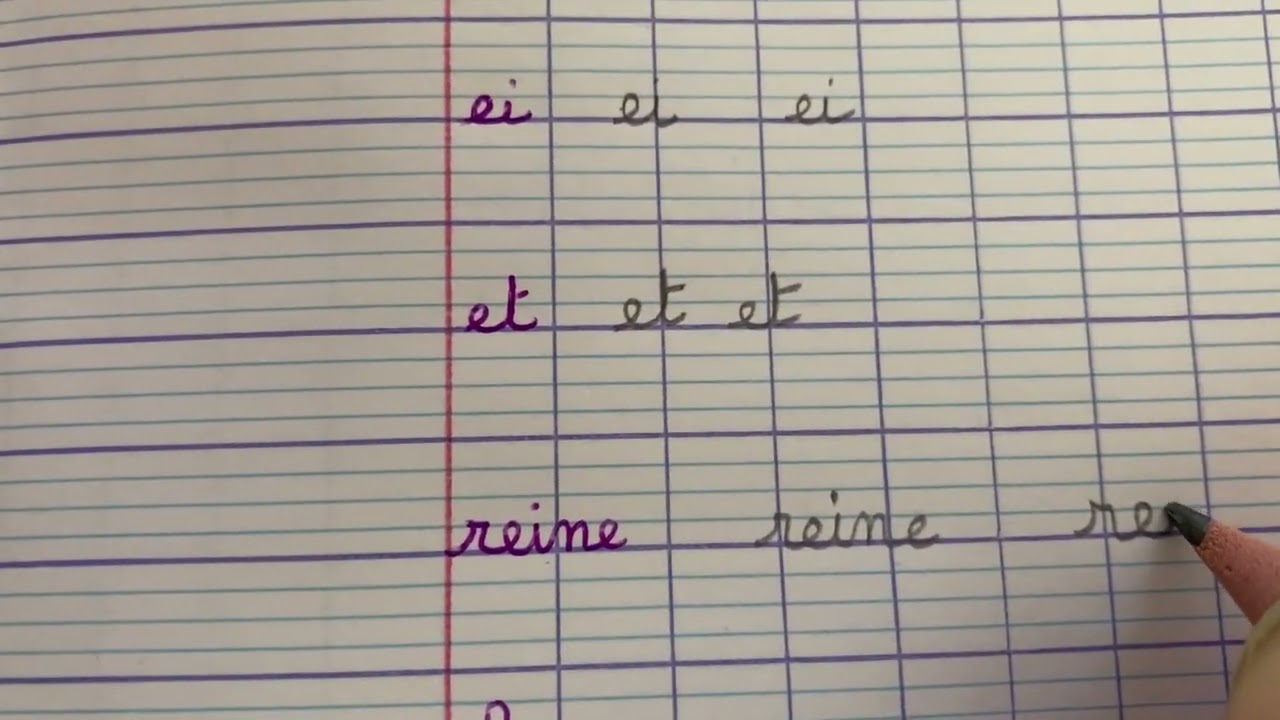 ei ei ei
et et et
reine reine re